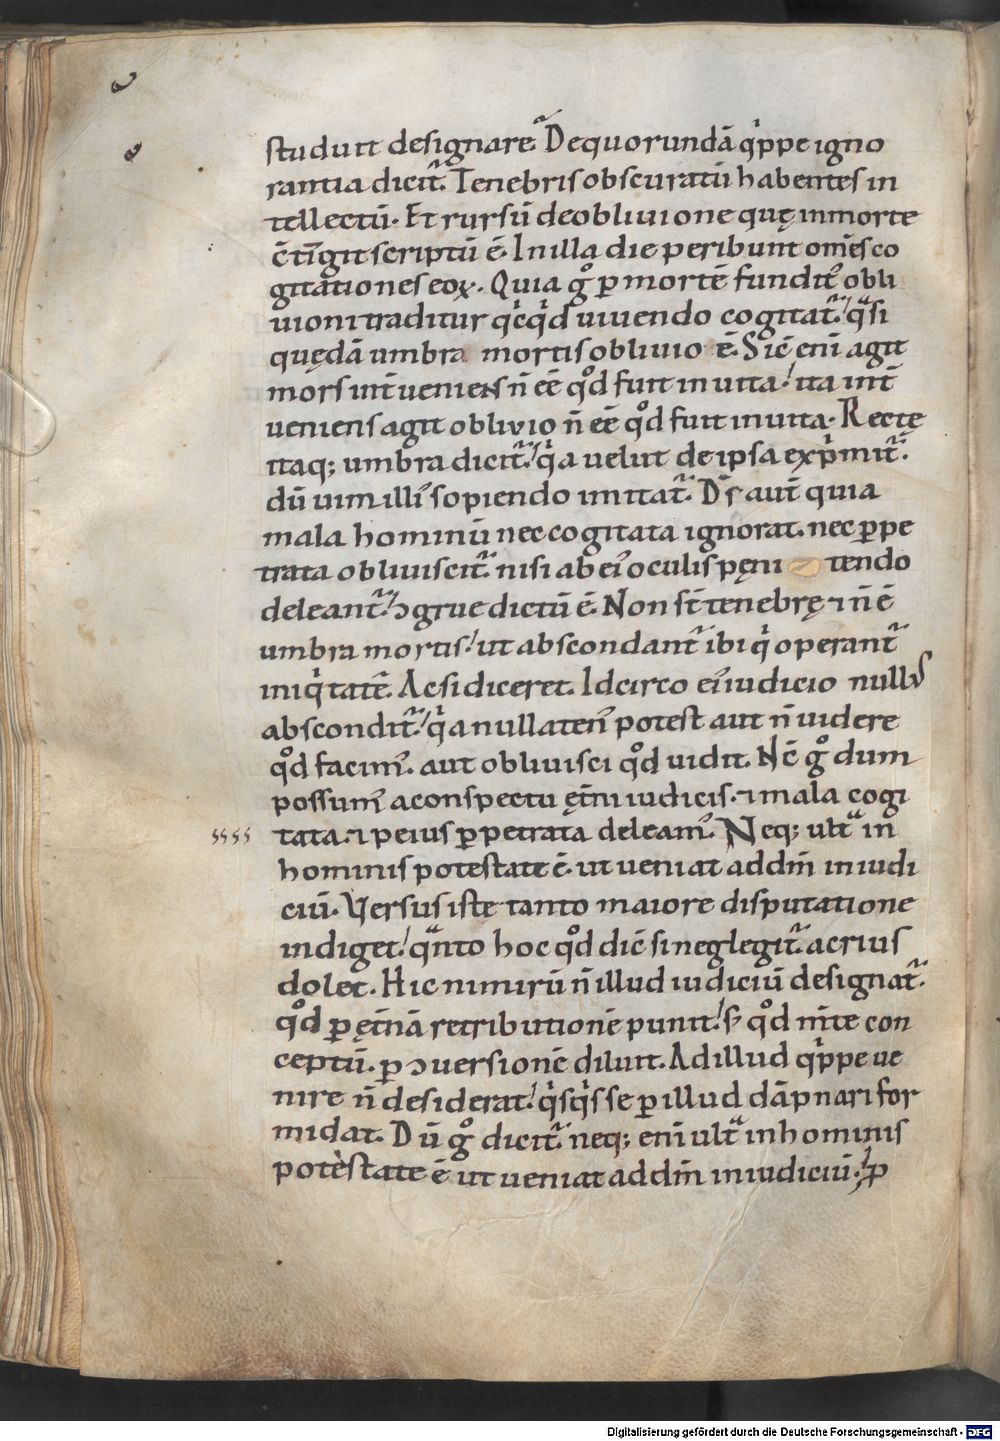 studuit designare. De quorundā q̍ppe igno
rantia dicit̄. Tenebris obscuratū habentes in
tellectū. Et rursū de obliuione quę in morte
c̄tīgit scriptū ē. In illa die peribunt om̄s co
gitationes eoꝝ. Quia g̊ ꝑ mortē fundit᷒ obli
uioni traditur q̍cq̍d uiuendo cogitat̄. q̄si
quędā umbra mortis obliuio ē. Sic̄ eni᷒ agit
mors int̄ueniens n̄ eē q̊d fuit in uita. ita int̄
ueniens agit obliuio n̄ eē q̊d fuit in uita. Rectę
itaq; umbra dicit̄. q̍a uelut de ipsa exp̍mit̄.
dū uim illi᷒ sopiendo imitat̄. D̄s aut̄ quia
mala hominū nec cogitata ignorat. nec ꝑpe
trata obliuiscit̄. nisi ab ei᷒ oculis pęni tendo
deleant̄. ↄgrue dictū ē. Non st̄ tenebrę ⁊ n̄ ē
umbra mortis. ut abscondant̄ ibi q̍ operant̄
iniq̍tatē. Ac si diceret. Idcirco ei᷒ iudicio nullus
abscondit̄. q̍a nullaten᷒ potest aut n̄ uidere
q̊d facim᷒. aut obliuisci q̊d uidit. Nc̄ g̊ dum
possum᷒ a conspectu ęt̄ni iudicis. ⁊ mala cogi
tata. ⁊ peius ꝑpetrata deleam᷒. Neq; ult̄ in
hominis potestate ē. ut ueniat ad dm̄ in iudi
ciū. Versus iste tanto maiore disputatione
indiget. q̄nto hoc q̊d dic̄ si neglegit̄. acrius
dolet. Hic nimirū n̄ illud iudiciū designat̄.
q̊d ꝑ ęt̄nā retributionē punit. s; q̊d m̄te con
ceptū. ꝑ ↄuersionē diluit. Ad illud q̍ppe ue
nire n̄ desiderat. q̍sq̍s se ꝑ illud dāpnari for
midat. Dū g̊ dicit̄. neq; eni᷒ ult̄ in hominis
potestate ē ut ueniat ad dm̄ in iudiciū. ꝑ
Digitalisierung gefördert durch die Deutsche Forschungsgemeinschaft - DFG